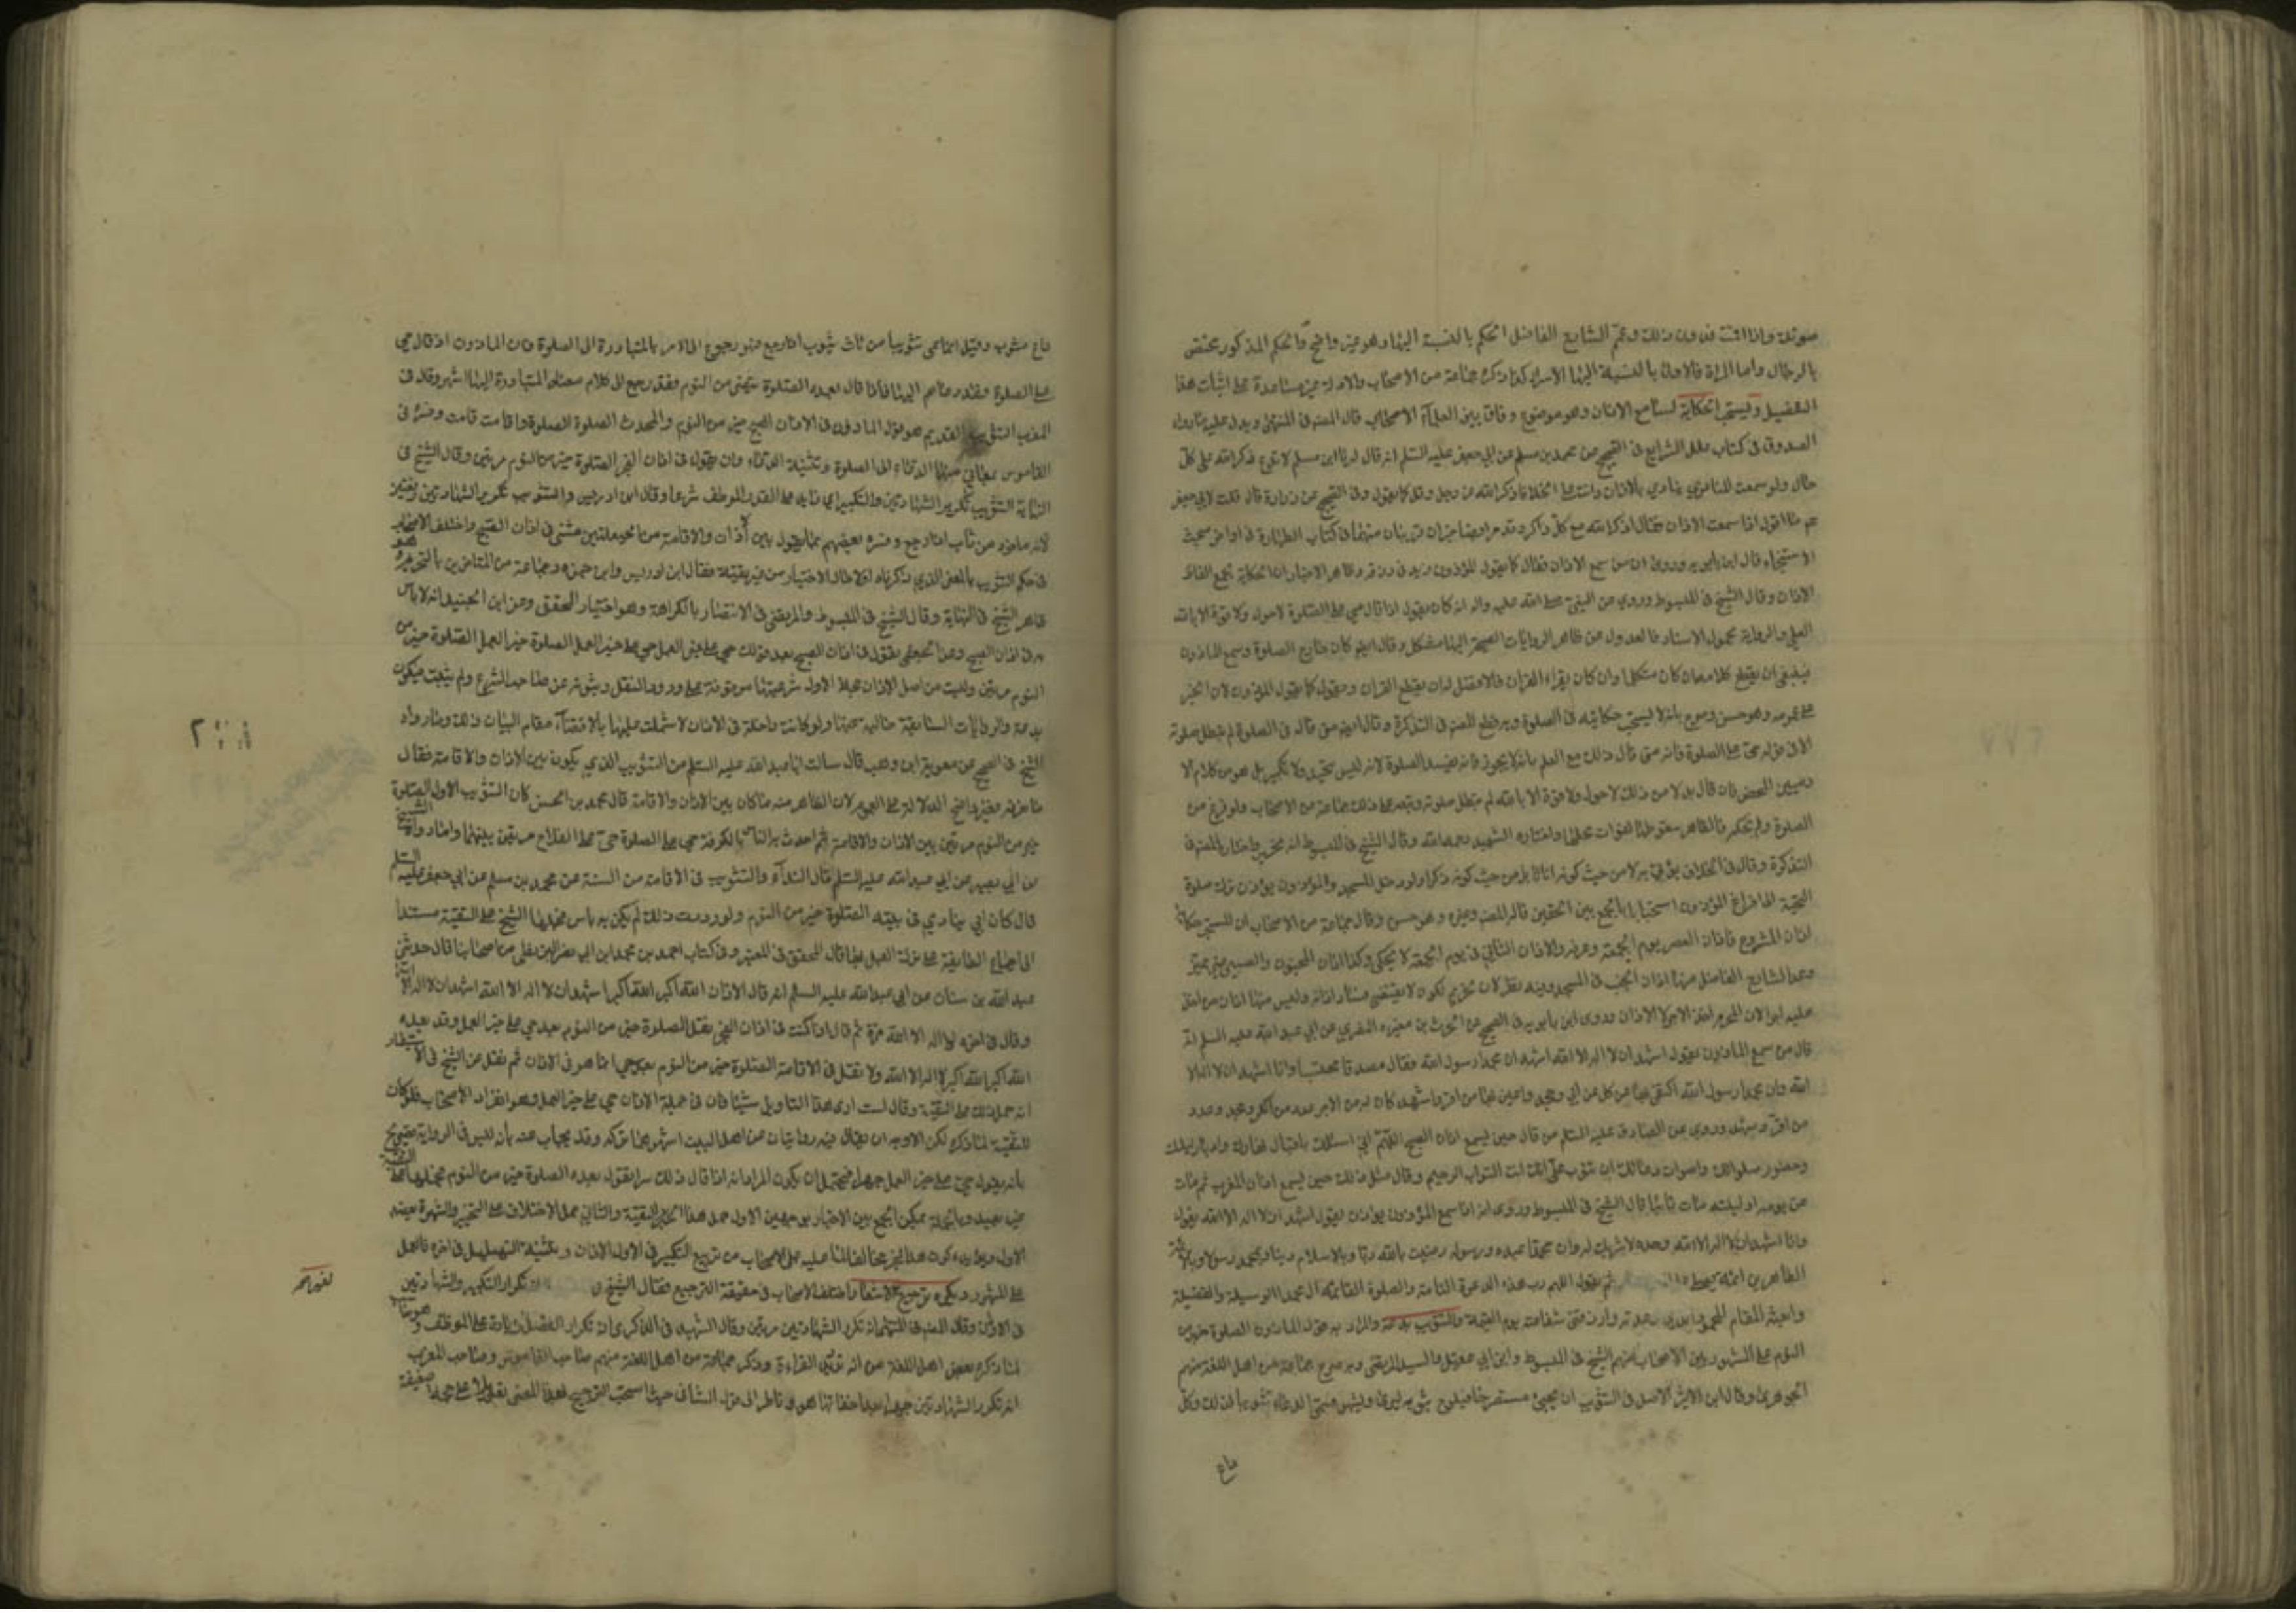 صوتك واذا اقمت فدون ذلك وعمم الشارع الفاضل الحكم بالنسبة اليها وهو غير واضح والحكم المذكور مختص
بالرجال واما المراة فالاولى بالنسبة اليها الاسرار كما ذكره جماعة من الاصحاب والادلة غير مساعدة على اثبات هذا
التفصيل ويستحب الحكاية لسامع الاذان وهو موضع وفاق بين العلماء الاصحاب قال المصنف فى المنتهى ويدل عليه ما رواه
الصدوق فى كتاب علل الشرايع فى الصحيح عن محمد بن مسلم عن ابي جعفر عليه السلم انه قال له يا ابن مسلم لا تدع ذكر الله على كل
حال ولو سمعت المنادي ينادي بالاذان وانت على الخلا فاذكر الله عز وجل وقل كما يقول وفى الصحيح عن زرارة قال قلت لابي جعفر
عم ما اقول اذا سمعت الاذان فقال اذكر الله مع كل ذاكر وقد مر ايضا خبران قريبان منهما فى كتاب الطهارة فى اداب
الاستنجاء قال ابن بابويه وروى ان من سمع الاذان فقال كما يقول المؤذن زيد فى رزقه وظاهر الاخبار ان الحكاية لجميع الفاظ
الاذان وقال الشيخ فى المبسوط وروي عن النبي صلى الله عليه واله انه كان يقول اذا قال حي على الصلوة لا حول ولا قوة الا بالله
العلي والرواية مجهولة الاسناد فالعدول عن ظاهر الروايات الصحيحة اليها مشكل وقال ايضا من كان خارج الصلوة وسمع المؤذن
فينبغي ان يقطع كلامه ان كان متكلما وان كان يقراء القران فالافضل له ان يقطع القران ويقول كما يقول المؤذن لان الخبر
على عمومه وهو حسن وصرح بانه لا يستحب حكايته فى الصلوة وبه قطع المصنف فى التذكرة وقال ايضا متى قاله فى الصلوة لم تبطل صلوته
الا فى قوله حي على الصلوة فانه متى قال ذلك مع العلم بانه لا يجوز فانه يفسد الصلوة لانه ليس بتحميد ولا تكبير بل هو من كلام الا
دميين المحض فان قال بدلا من ذلك لا حول ولا قوة الا بالله لم تبطل صلوته وتبعه على ذلك جماعة من الاصحاب ولو فرغ من
الصلوة ولم يحكه فالظاهر سقوطها لفوات محلها واختاره الشهيد رحمه الله وقال الشيخ فى المبسوط انه مخير واختاره المصنف فى
التذكرة وقال فى الخلاف يؤتى به لا من حيث كونه اذانا بل من حيث كونه ذكرا ولو دخل المسجد والمؤذن يؤذن ترك صلوة
التحية الى فراغ المؤذن استحبابا ليجمع بين الحقين قاله المصنف وغيره وهو حسن وقال جماعة من الاصحاب ان المستحب حكاية
اذان المشروع فاذان العصر يوم الجمعة وعرفه والاذان الثاني فى يوم الجمعة لا يحكى وكذا اذان المجنون والصبي غير مميز
وعد الشارع الفاضل منها اذان الجنب فى المسجد وفيه نظر لان تحريم الكون لا يقتضي فساد اذانه وليس منها اذان من اخذ
عليه اجرا لان المحرم اخذ الاجرة لا الاذان وروى ابن بابويه فى الصحيح عن الحرث بن مغيره النضري عن ابي عبد الله عليه السلم انه
قال من سمع المؤذن يقول اشهد ان لا اله الا الله اشهد ان محمدا رسول الله فقال مصدقا محتسبا وانا اشهد ان لا اله الا
الله وان محمدا رسول الله اكتفى بهما من كل من ابى وجحد واعين بهما من اقر واشهد كان له من الاجر عدد من انكر وجحد وعدد
من اقر وشهد وروي عن الصادق عليه السلم من قال حين يسمع اذان الصبح اللهم اني اسئلك باقبال نهارك وادبار ليلك
وحضور صلواتك واصوات دعائك ان تتوب علي انك انت التواب الرحيم وقال مثل ذلك حين يسمع اذان المغرب ثم مات
من يومه او ليلته مات تائبا قال الشيخ فى المبسوط وروى انه اذا سمع المؤذن يؤذن يقول اشهد ان لا اله الا الله يقول
وانا اشهد ان لا اله الا الله وحده لا شريك له وان محمدا عبده ورسوله رضيت بالله ربا وبالاسلام دينا وبمحمد رسولا وبالائمة
الطاهرين ائمة ثم يقول اللهم رب هذه الدعوة التامة والصلوة القائمة ات محمدا الوسيلة والفضيلة
وابعثه المقام المحمود الذي وعدته وارزقني شفاعته يوم القيمة والتثويب بدعة والمراد به قول المؤذن الصلوة خير من
النوم على المشهور بين الاصحاب منهم الشيخ فى المبسوط وابن ابي عقيل والسيد المرتضى وبه صرح جماعة من اهل اللغة منهم
الجوهري وقال ابن الاثير الاصل فى التثويب ان يجيئ مستصرخا فيلوح بثوبه ليرى وليشهر فسمى الدعاء تثويبا لذلك وكل
داع
داع مثوب وقيل انما سمى تثويبا من ثاب يثوب اذا رجع فهو رجوع الى الامر بالمبادرة الى الصلوة فان المؤذن اذا قال حي
على الصلوة فقد دعاهم اليها فاذا قال بعده الصلوة خير من النوم فقد رجع الى كلام معناه المبادرة اليها انتهى وقال فى
المغرب التثويب القديم هو قول المؤذن فى الاذان الصبح خير من النوم والمحدث الصلوة الصلوة او قامت قامت وفسره فى
القاموس بمعاني منها الدعاء الى الصلوة وتثنية الدعاء وان يقول فى اذان الفجر الصلوة خير من النوم مرتين وقال الشيخ فى
النهاية التثويب تكرير الشهادتين والتكبير اي زايد على القدر الموظف شرعا وقال ابن ادريس والتثويب تكرير الشهادتين دفعتين
لانه ماخوذ من ثاب اذا رجع وفسره بعضهم بما يقول بين اذان والاقامة من الحيعلتين مثنى فى اذان الصبح واختلف الاصحاب
فى حكم التثويب بالمعنى الذي ذكرناه اولا حال الاختيار من غير تقية فقال ابن ادريس وابن حمزه وجماعة من المتاخرين بالتحريم وهو
ظاهر الشيخ فى النهاية وقال الشيخ فى المبسوط والمرتضى فى الانتصار بالكراهة وهو اختيار المحقق وعن ابن الجنيد انه لا باس
به فى اذان الصبح وعن الجعفي تقول فى اذان الصبح بعد قولك حي على خير العمل حي على خير العمل الصلوة خير من
النوم مرتين وليست من اصل الاذان لنا الاول شرعيتها موقوفة على ورود النقل وثبوته عن صاحب الشرع ولم يثبت فيكون
بدعة والروايات السابقة خالية عنها ولو كانت داخلة فى الاذان لاشتملت عليها بالاقتضاء مقام البيان ذلك وما رواه
الشيخ فى الصحيح عن معوية ابن وهب قال سالت ابا عبد الله عليه السلم عن التثويب الذي يكون بين الاذان والاقامة فقال
ما نعرفه وغير واضح الدلالة على العموم لان الظاهر منه ما كان بين الاذان والاقامة قال محمد بن الحسن كان التثويب الاول الصلوة
خير من النوم مرتين بين الاذان والاقامة ثم احدث الناس بالكوفة حي على الصلوة حي على الفلاح مرتين بينهما واما ما رواه الشيخ
عن ابي بصير عن ابي عبد الله عليه السلم قال النداء والتثويب فى الاقامة من السنة عن محمد بن مسلم عن ابي جعفر عليه السلم
قال كان ابي ينادي فى بيته الصلوة خير من النوم ولو رددت ذلك لم يكن به باس فحملها الشيخ على التقية مستندا
الى اجماع الطايفة على ترك العمل بهما قال المحقق فى المعتبر وفى كتاب احمد بن محمد ابن ابي نصر البزنطي من اصحابنا قال حدثني
عبد الله بن سنان عن ابي عبد الله عليه السلم انه قال الاذان الله اكبر الله اكبر اشهد ان لا اله الا الله اشهد ان لا اله الا الله
وقال فى اخره لا اله الا الله مرة ثم قال اذا كنت فى اذان الفجر فقل الصلوة خير من النوم بعد حي على خير العمل وقل بعده
الله اكبر الله اكبر لا اله الا الله ولا تقل فى الاقامة الصلوة خير من النوم بعد حي انما هو فى الاذان ثم نقل عن الشيخ فى الاستبصار
انه حمل ذلك على التقية وقال لست ارى هذا التاويل شيئا فان فى جملة الاذان حي على خير العمل وهو انفراد الاصحاب فلو كان
للتقية لما ذكره لكن الاوجه ان يقال فيه روايتان عن اهل البيت اشهرهما تركه وقد يجاب عنه بانه ليس فى الرواية تصريح
بانه يقول حي على خير العمل جهرا فيحتمل ان يكون المراد انه اذا قال ذلك سرا يقول بعده الصلوة خير من النوم فحملها على التقية
غير بعيد وبالجملة يمكن الجمع بين الاخبار بوجهين الاول حمل هذا الخبر على التقية والثاني حمل الاختلاف على التخيير والشهرة تعين
الاول ويؤيده كون هذا الخبر مخالفا لما عليه عمل الاصحاب من تربيع التكبير فى الاول الاذان وتثنية التهليل فى اخره فالعمل
على المشهور ويكره ترجيع لغير الاشعار واختلف الاصحاب فى حقيقة الترجيع فقال الشيخ انه تكرار التكبير والشهادتين
فى الاذان وقال المصنف فى المنتهى انه تكرر الشهادتين مرتين وقال الشهيد فى الذكرى انه تكرار الفصل زيادة على الموظف وهو مناسب
لما ذكره بعض اهل اللغة من انه ترديد القراءة وذكر جماعة من اهل اللغة منهم صاحب القاموس وصاحب المغرب
انه تكرر الشهادتين جهرا بعد اخفاتهما هو ناظر الى قول الشافعي حيث استحب الترجيع بهذا المعنى تعويلا على حجة ضعيفة